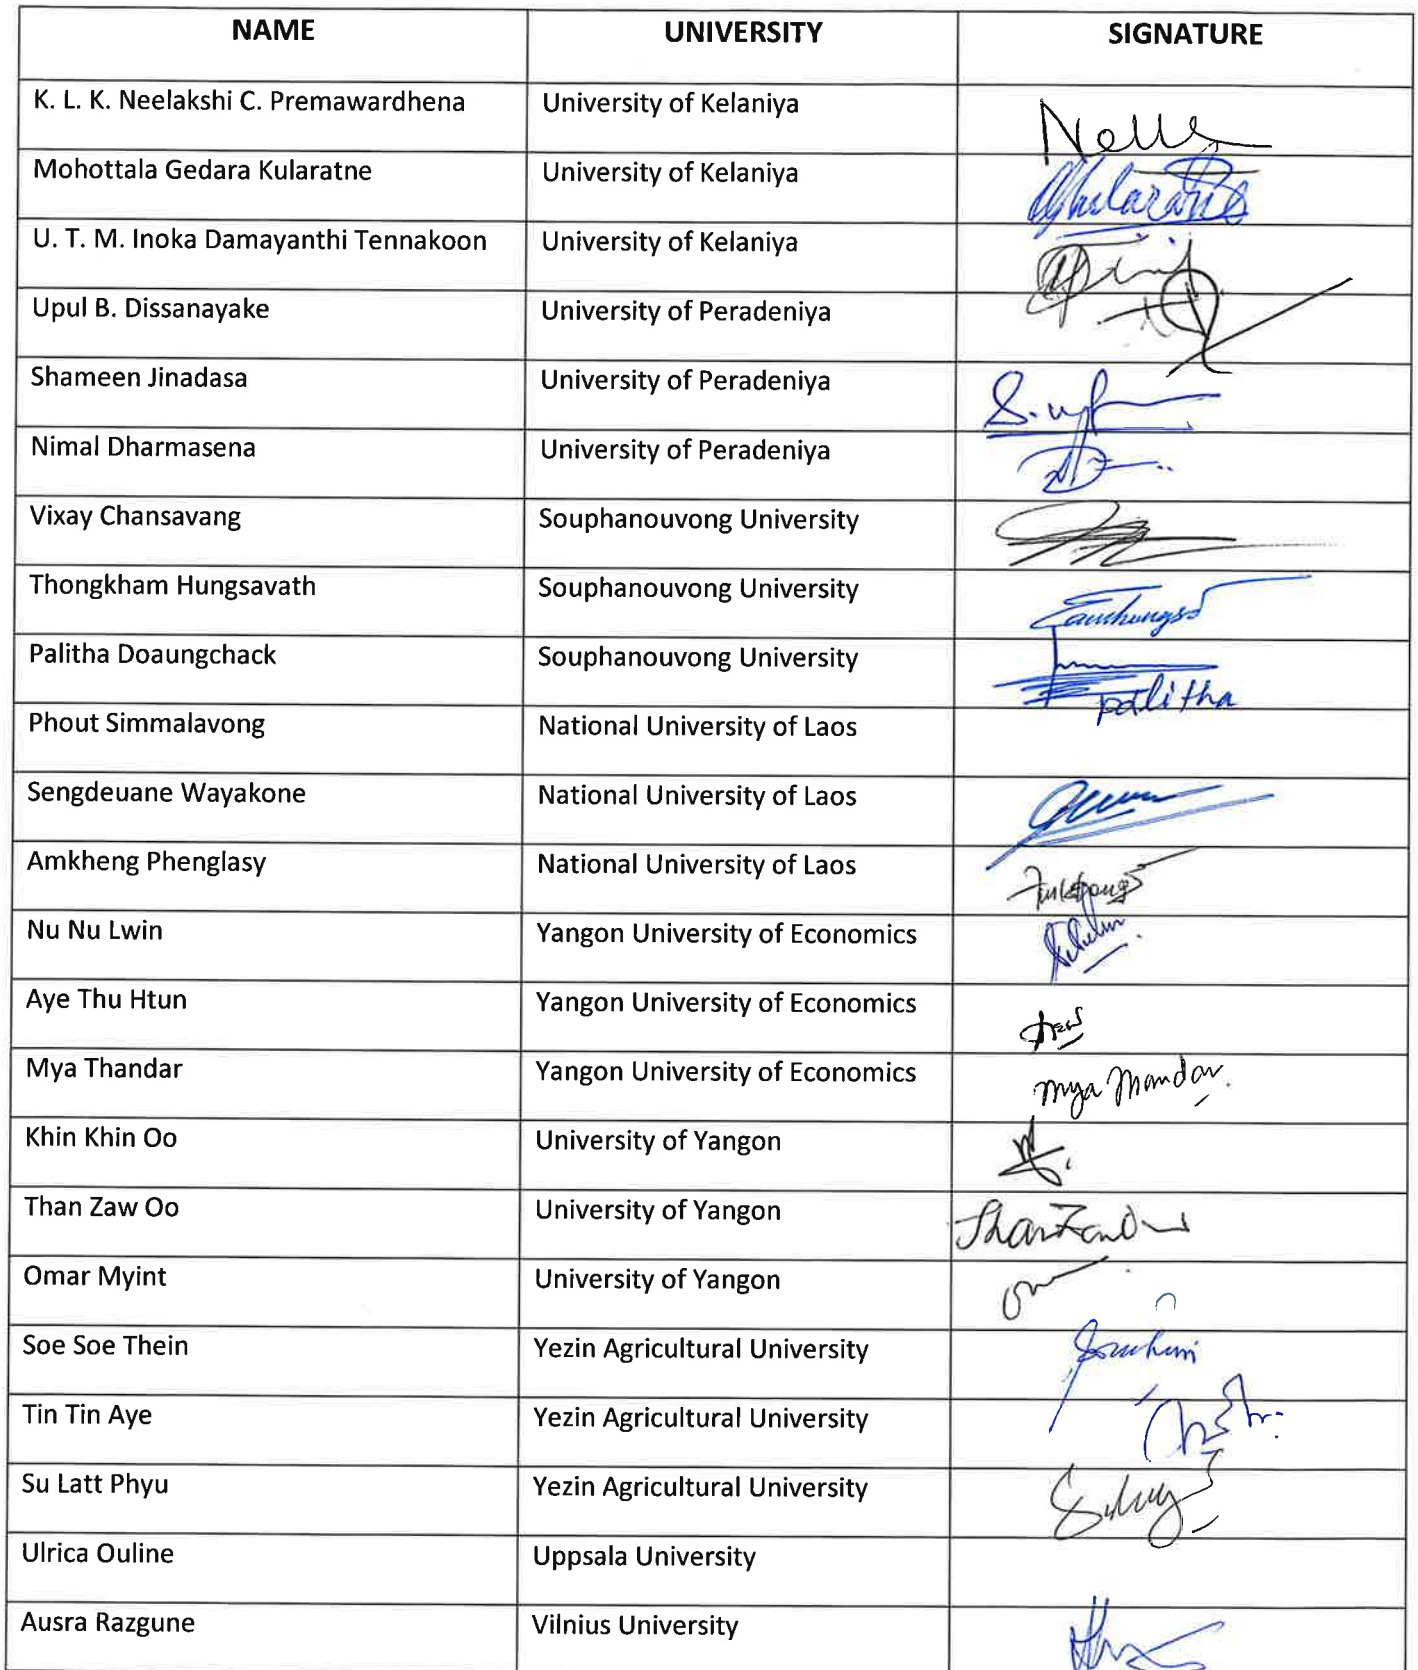 NAME UNIVERSITY SIGNATURE
K. L. K. Neelakshi C. Premawardhena University of Kelaniya
Mohottala Gedara Kularatne University of Kelaniya
U. T. M. Inoka Damayanthi Tennakoon University of Kelaniya
Upul B. Dissanayake University of Peradeniya
Shameen Jinadasa University of Peradeniya
Nimal Dharmasena University of Peradeniya
Vixay Chansavang Souphanouvong University
Thongkham Hungsavath Souphanouvong University
Palitha Doaungchack Souphanouvong University palitha
Phout Simmalavong National University of Laos
Sengdeuane Wayakone National University of Laos
Amkheng Phenglasy National University of Laos
Nu Nu Lwin Yangon University of Economics
Aye Thu Htun Yangon University of Economics
Mya Thandar Yangon University of Economics Mya Thandar
Khin Khin Oo University of Yangon
Than Zaw Oo University of Yangon
Omar Myint University of Yangon
Soe Soe Thein Yezin Agricultural University
Tin Tin Aye Yezin Agricultural University
Su Latt Phyu Yezin Agricultural University
Ulrica Ouline Uppsala University
Ausra Razgune Vilnius University